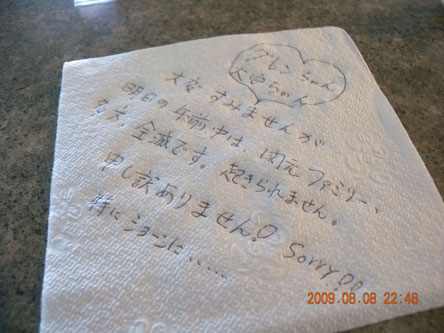 グレン ちゃん
ちゃん
大変 すみませんが
明日の 午前中は、関元ファミリー、
多分、全滅です。起きられません。
申し訳ありません! Sorry!!
特に ショーンに、、、、、
2009.08.08 22:48